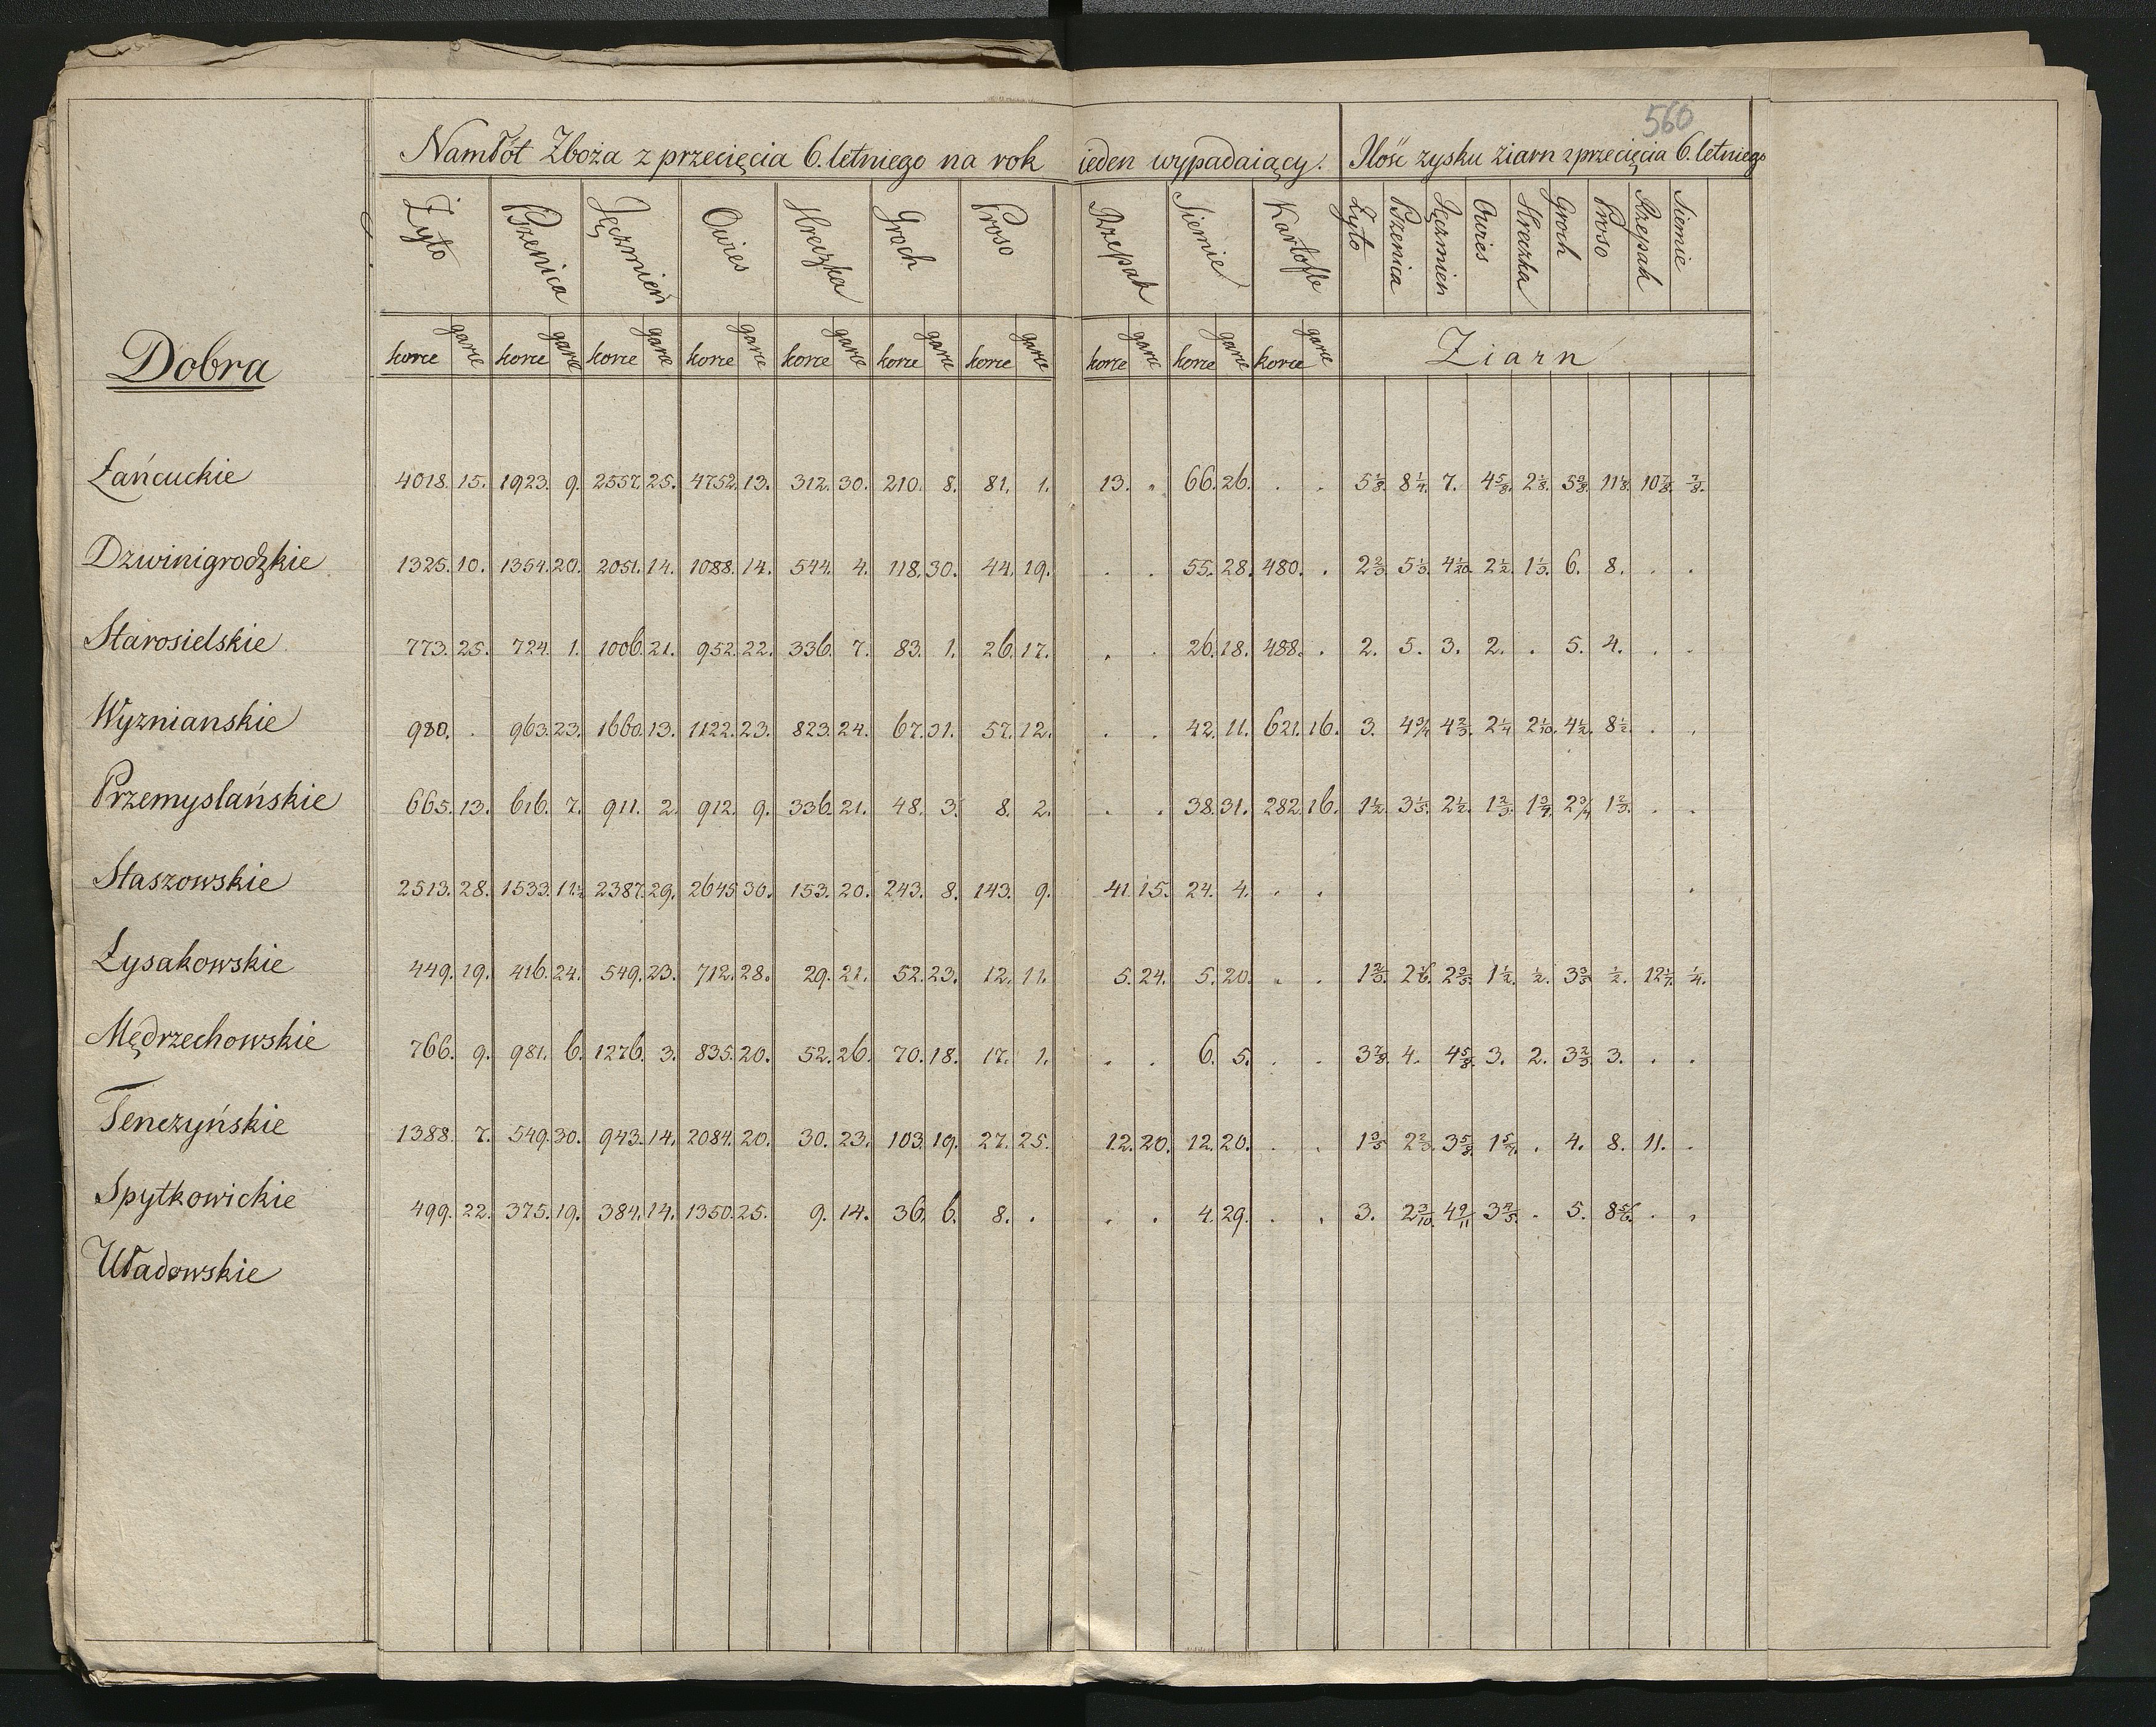 560
Namłót Zboża z przecięcia 6. letniego na rok ieden wypadaiący. Ilość zysku ziarn z przecięcia 6. letniego
Żyto Pszenica Jęczmień Owies Hreczka Groch Proso Rzepak Siemie Kartofle Żyto Pszenica Jęczmien Owies Hreczka Groch Proso Rzepak Siemie
Dobra
korce garce korce garce korce garce korce garce korce garce korce garce korce garce korce garce korce garce korce garce Ziarn
Łańcuckie 4018. 15. 1923. 9. 2557. 25. 4752. 13. 312. 30. 210. 8. 81. 1. 13. . 66. 26. . . 5 1/8. 8 1/4. 7. 4 5/8. 2 1/8. 5 3/8. 11 1/8. 10 7/8. 7/8.
Dzwinigrodzkie 1325. 10. 1354. 20. 2051. 14. 1088. 14. 544. 4. 118. 30. 44. 19. . . 55. 28. 480. . 2 2/3. 5 1/3. 4 1/20. 2 1/2. 1 1/3. 6. 8. . .
Starosielskie 773. 25. 724. 1. 1006. 21. 952. 22. 336. 7. 83. 1. 26. 17. . . 26. 18. 488. . 2. 5. 3. 2. . 5. 4. . .
Wyznianskie 980. . 963. 23. 1660. 13. 1122. 23. 823. 24. 67. 31. 57. 12. . . 42. 11. 621. 16. 3. 4 3/4 4 2/3. 2 1/4 2 1/10. 4 1/2. 8 1/2. . .
Przemyslańskie 665. 13. 616. 7. 911. 2. 912. 9. 336. 21. 48. 3. 8. 2. . . 38. 31. 282. 16. 1 1/2. 3 1/5. 2 1/2. 1 2/3. 1 3/4. 2 3/4 1 2/3. . .
Staszowskie 2513. 28. 1533. 11 1/2 2387. 29. 2645 30. 153. 20. 243. 8. 143. 9. 41. 15. 24. 4. . . .
Łysakowskie 449. 19. 416. 24. 549. 23. 712. 28. 29. 21. 52. 23. 12. 11. 5. 24. 5. 20. . . 1 2/3. 2 1/6. 2 3/5. 1 1/2. 1/2. 3 3/5 1/2. 12 1/7. 1/4.
Mędrzechowskie 766. 9. 981. 6. 1276. 3. 835. 20. 52. 26. 70. 18. 17. 1. . . 6. 5. . . 3 7/8. 4. 4 5/8. 3. 2. 3 2/3. 3. . .
Tenczyńskie 1388. 7. 549. 30. 943. 14. 2084. 20. 30. 23. 103. 19. 27. 25. 12. 20. 12. 20. . . 1 3/5 2 2/3. 3 5/8. 1 5/7. . 4. 8. 11. .
Spytkowickie 499. 22. 375. 19. 384. 14. 1350. 25. 9. 14. 36. 6. 8. . . . 4. 29. . . 3. 2 3/10. 4 9/11 3 4/5. . 5. 8 5/6. . .
Uładowskie